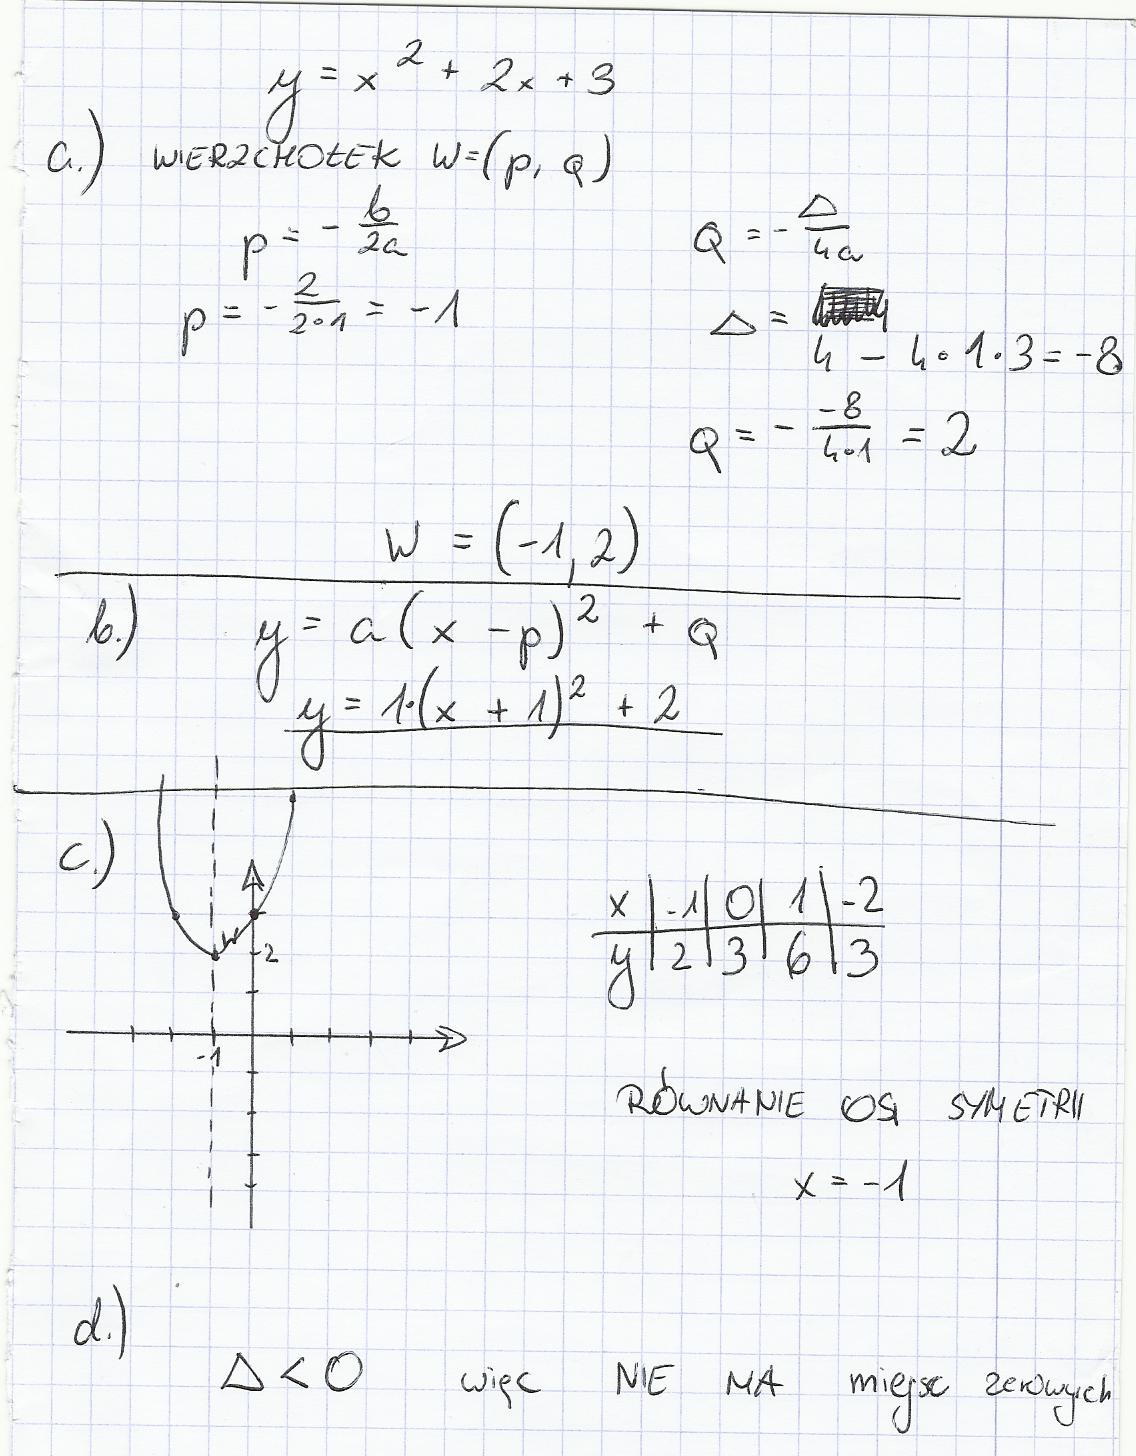 y = x² + 2x + 3
a.) WIERZCHOŁEK W=(p, Q)
p = - b/2a
p = - 2/2·1 = -1
Q = - Δ/4a
Δ =
4 - 4·1·3 = -8
Q = - -8/4·1 = 2
W = (-1, 2)
b.) y = a(x - p)² + Q
y = 1·(x + 1)² + 2
c.)
W
2
-1
x | -1 | 0 | 1 | -2
y | 2 | 3 | 6 | 3
RÓWNANIE OSI SYMETRII
x = -1
d.)
Δ < 0 więc NIE MA miejsc zerowych